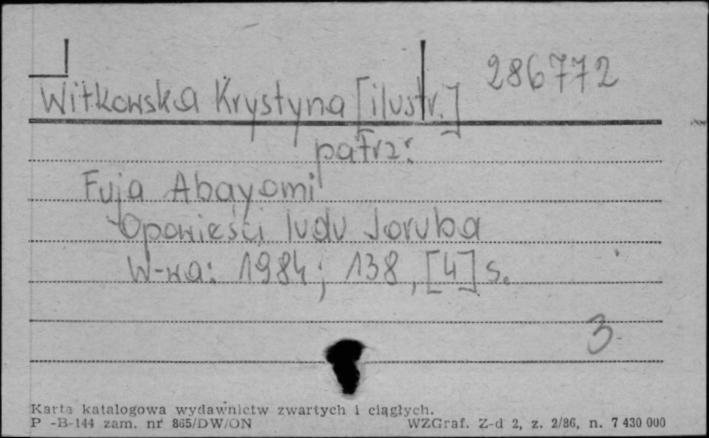 286772
Witkowska Krystyna [ilustr.]
patrz:
Fuja Abayomi
Opowieści ludu Joruba
W-wa: 1984; 138, [4] s.
3
Karta katalogowa wydawnictw zwartych i ciągłych.
P -B-144 zam. nr 865/DW/ON WZGraf. Z-d 2, z. 2/86, n. 7 430 000